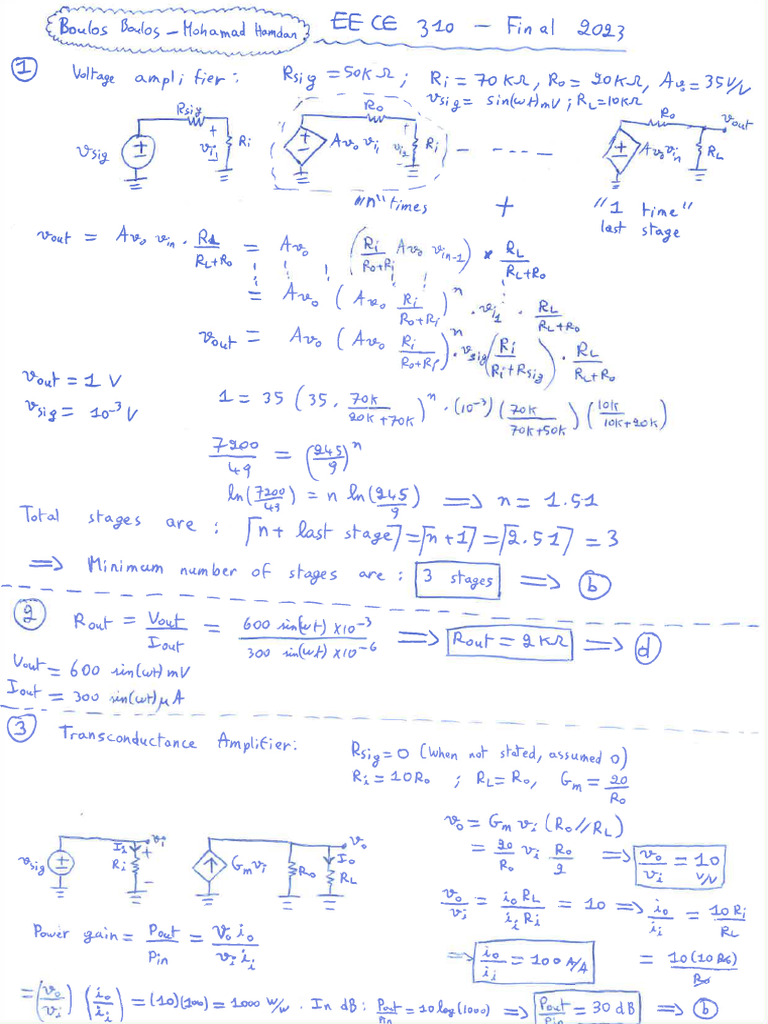 Boulos Boulos - Mohamad Hamdan
EECE 310 - Final 2023
1 Voltage amplifier: Rsig = 50KΩ ; Ri = 70KΩ, Ro = 20KΩ, Avo = 35V/V
vsig = sin(ωt) mV ; RL = 10KΩ
Rsig Ro Ro vout
vsig + vi1 Ri Avo vi1 + vi2 Ri - - - - - - Avo vin RL
"n" times + "1 time"
last stage
vout = Avo vin . RL/(RL+Ro) = Avo (Ri/(Ro+Ri) Avo vin-1) * RL/(RL+Ro)
= Avo (Avo Ri/(Ro+Ri))^n . vi1 . RL/(RL+Ro)
vout = Avo (Avo Ri/(Ro+Ri))^n . vsig (Ri/(Ri+Rsig)) . RL/(RL+Ro)
vout = 1 V
vsig = 10^-3 V
1 = 35 (35 . 70K/(20K+70K))^n . (10^-3) (70K/(70K+50K)) (10K/(10K+20K))
7200/49 = (245/9)^n
ln(7200/49) = n ln(245/9) ⟹ n = 1.51
Total stages are : ⌈n + last stage⌉ = ⌈n+1⌉ = ⌈2.51⌉ = 3
⟹ Minimum number of stages are : 3 stages ⟹ b
2 Rout = Vout/Iout = 600 sin(ωt) x10^-3 / 300 sin(ωt) x10^-6 ⟹ Rout = 2KΩ ⟹ d
Vout = 600 sin(ωt) mV
Iout = 300 sin(ωt) μA
3 Transconductance Amplifier: Rsig = 0 (when not stated, assumed 0)
Ri = 10Ro ; RL = Ro, Gm = 20/Ro
vsig Ii Ri + - vi Gm vi Ro Io RL vo
vo = Gm vi (Ro // RL)
= 20/Ro vi Ro/2 ⟹ vo/vi = 10 V/V
vo/vi = io RL/ii Ri = 10 ⟹ io/ii = 10Ri/RL
= 10(10Ro)/Ro
⟹ io/ii = 100 A/A
Power gain = Pout/Pin = vo io/vi ii
= (vo/vi) (io/ii) = (10)(100) = 1000 W/W . In dB : Pout/Pin = 10log(1000) ⟹ Pout/Pin = 30 dB ⟹ b